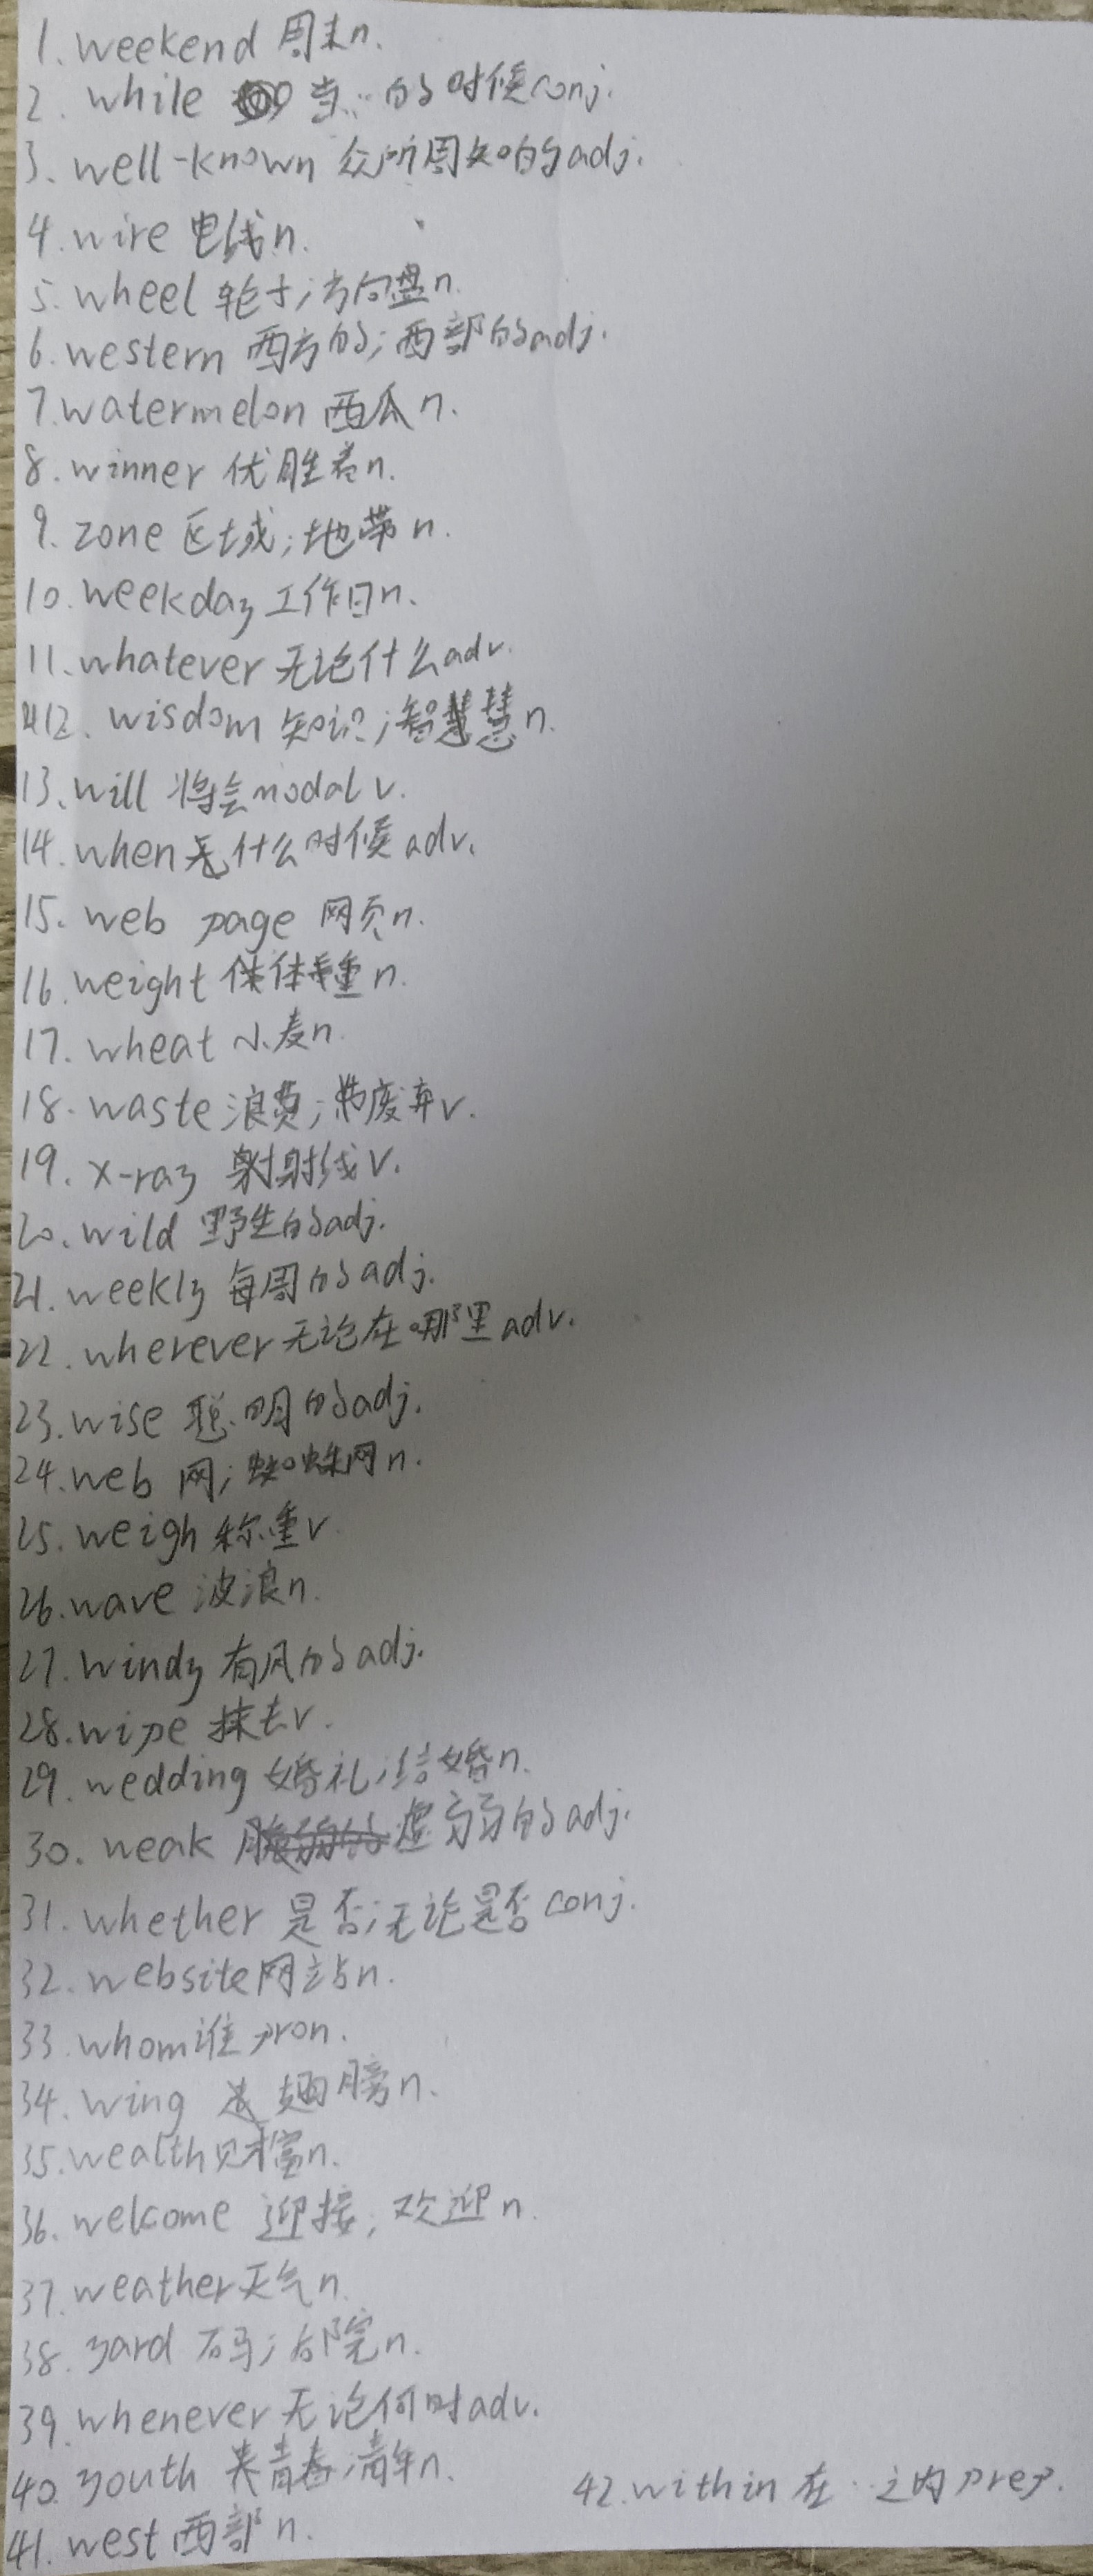 1. weekend 周末n.
2. while 当…的时候conj.
3. well-known 众所周知的adj.
4. wire 电线n.
5. wheel 轮子;方向盘n.
6. western 西方的;西部的adj.
7. watermelon 西瓜n.
8. winner 优胜者n.
9. zone 区域;地带n.
10. weekday 工作日n.
11. whatever 无论什么adv.
12. wisdom 知识;智慧n.
13. will 将会modal v.
14. when 什么时候adv.
15. web page 网页n.
16. weight 体重n.
17. wheat 小麦n.
18. waste 浪费;废弃v.
19. x-ray 射线v.
20. wild 野生的adj.
21. weekly 每周的adj.
22. wherever 无论在哪里adv.
23. wise 聪明的adj.
24. web 网;蜘蛛网n.
25. weigh 称重v
26. wave 波浪n.
27. windy 有风的adj.
28. wipe 抹去v.
29. wedding 婚礼;结婚n.
30. weak 虚弱的adj.
31. whether 是否;无论是否conj.
32. website 网站n.
33. whom 谁pron.
34. wing 翅膀n.
35. wealth 财富n.
36. welcome 迎接;欢迎n.
37. weather 天气n.
38. yard 码;后院n.
39. whenever 无论何时adv.
40. youth 青春;青年n.
41. west 西部n.
42. within 在…之内prep.